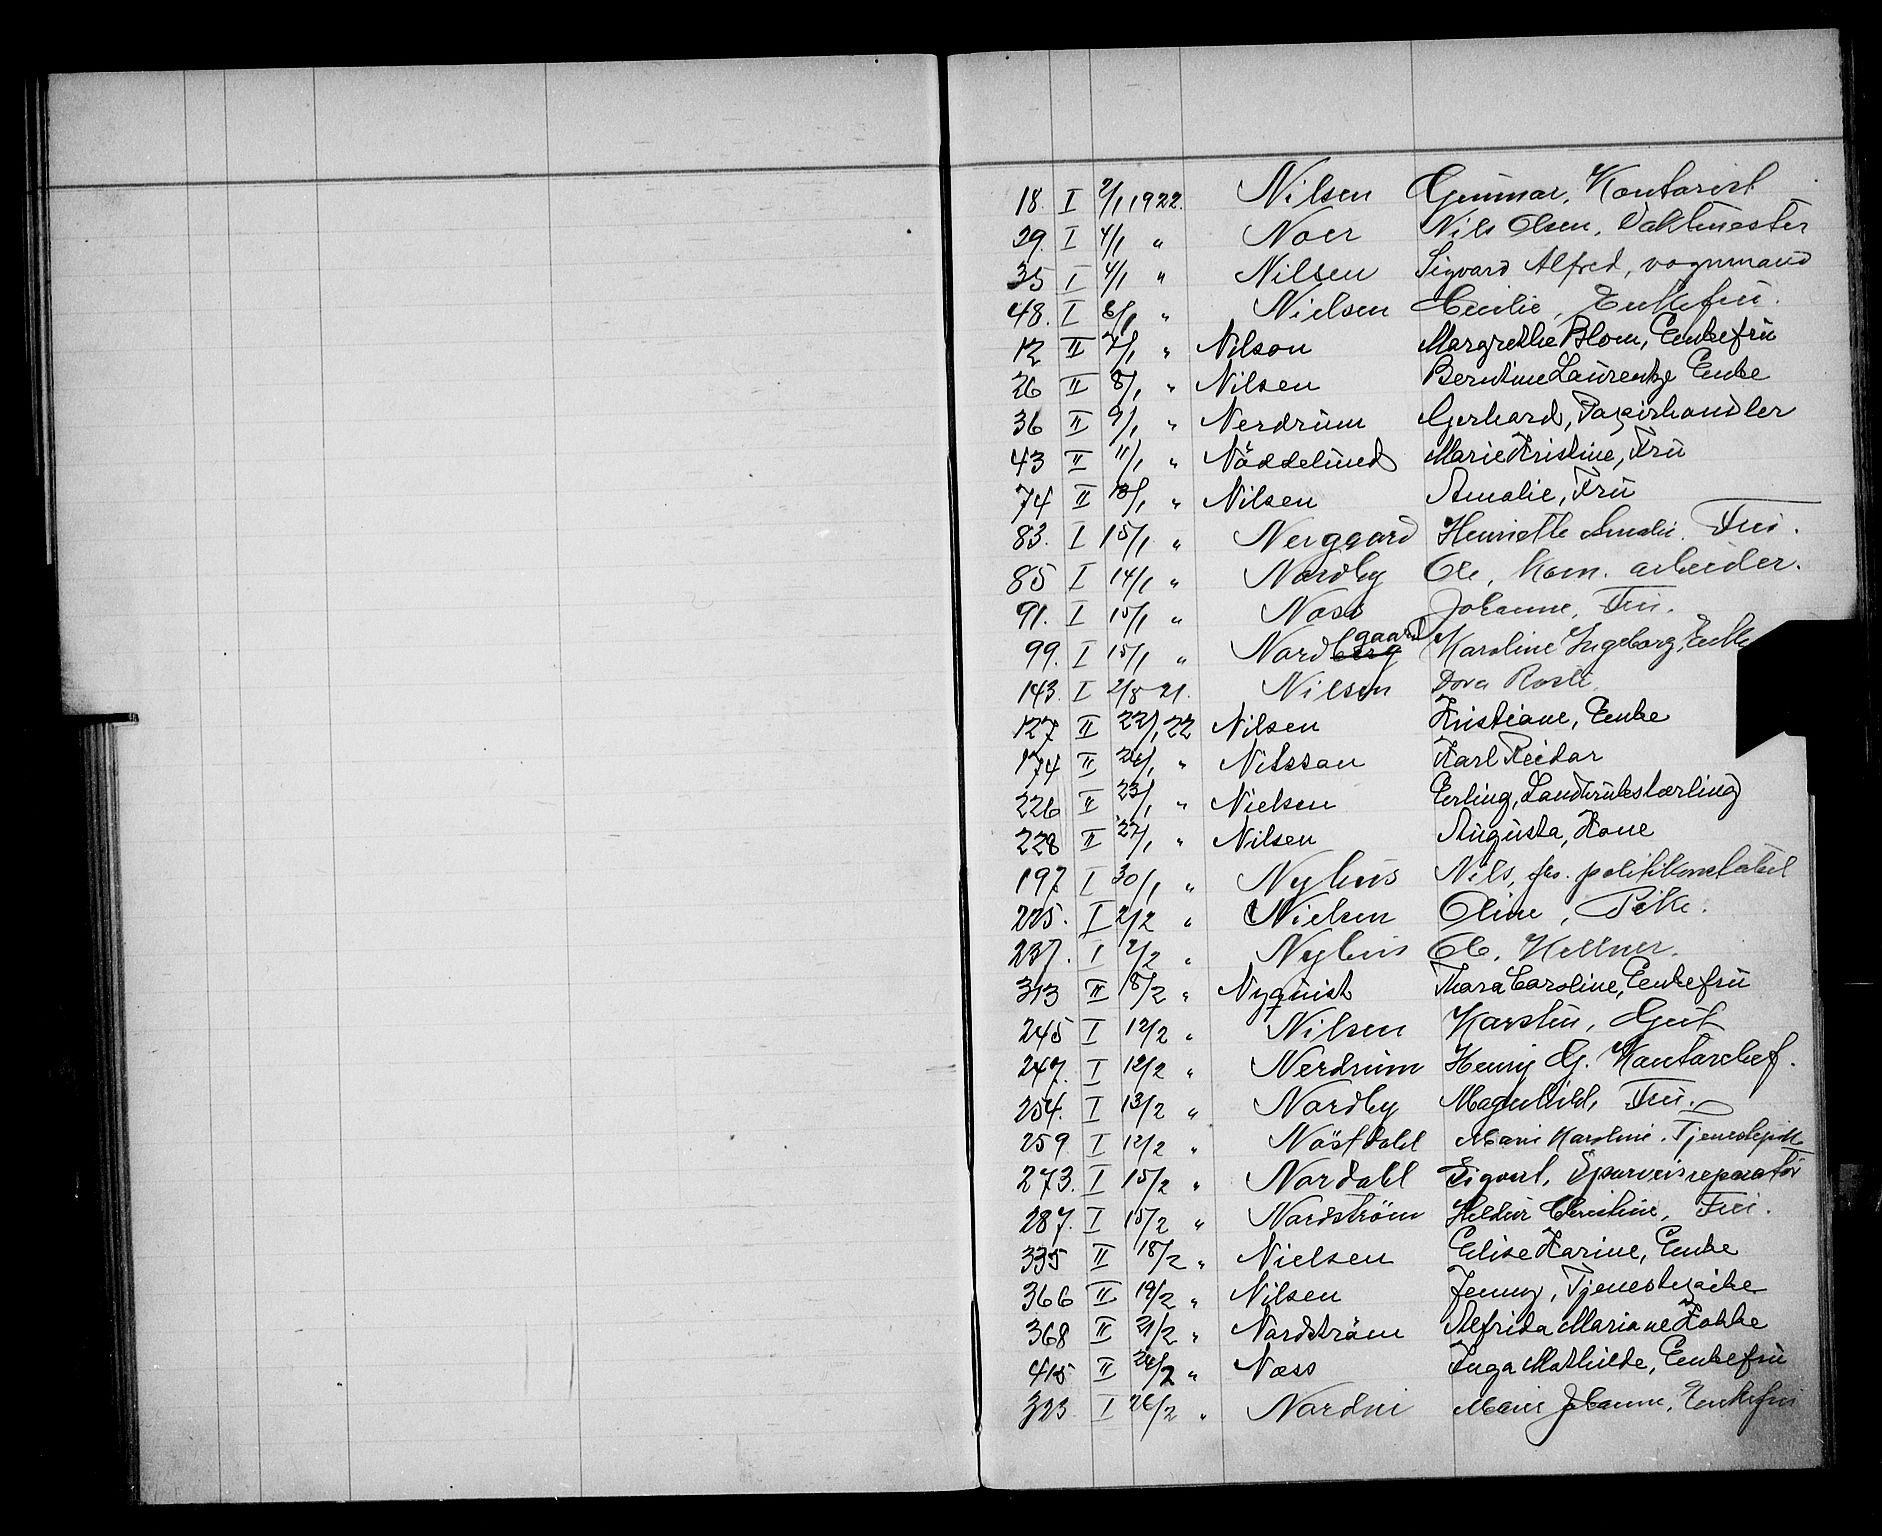 18. I 2/1 1922. Nilsen Gunnar, Kontorist
29. I 4/1 " Noer Nils Olsen, Vaktmester
35 I 4/1 " Nilsen Sigvard Alfred, vognmand
48. I 6/1 " Nielsen Cecilie, Enkefru.
12 II 7/1 " Nilson Margrethe Blom, Enkefru
26 II 8/1 " Nilsen Berntine Laurentze Enke
36 II 9/1 " Nerdrum Gerhard, Papirhandler
43 II 11/1 " Nöddelund Marie Kristine, Fru
74 II 13/1 " Nilsen Amalie, Fru
83. I 15/1 " Nergaard Henriette Amalie. Fru.
85 I 14/1 " Nordby Ole, Kom. arbeider.
91. I 15/1 " Næss Johanne, Fru.
99. I 15/1 " Nordberg gaard Karoline Ingeborg, Enke
143. I 2/8 21. Nilsen Dora
127 II 22/1 22 Nilsen Kristiane, Enke
174 II 24/1 " Nilsson Karl Reidar
226 II 23/1 " Nielsen Erling, Landbrukslærling
228 II 27/1 " Nilsen Augusta, Kone
197. I 30/1 " Nyhus Nils, fhv. politikonstabel
225. I 2/2 " Nielsen Oline, Pike.
237. I 2/2 " Nyhus Ole, Kellner.
313 II 8/2 " Nyquist Thora Caroline, Enkefru
245 I 12/2 " Nilsen Karsten, Gut
247. I 12/2 " Nerdrum Henry G. Kontorchef.
254. I 13/2 " Nordby Magnhild, Fru.
259 I 12/2 " Nöstdahl Marie Karoline. Tjenestepike
273. I 15/2 " Nordahl Sigurd, Sporveisreparatör
287. I 15/2 " Nordström Hildur Christine, Fru.
335 II 18/2 " Nielsen Elise Karine, Enke
366 II 19/2 " Nilsen Jenny, Tjenestepike
368 II 21/2 " Nordström Alfrida Mariane Kokke
415 II 24/2 " Næss Inga Mathilde, Enkefru
323 I 26/2 " Marie Johanne, Enkefru